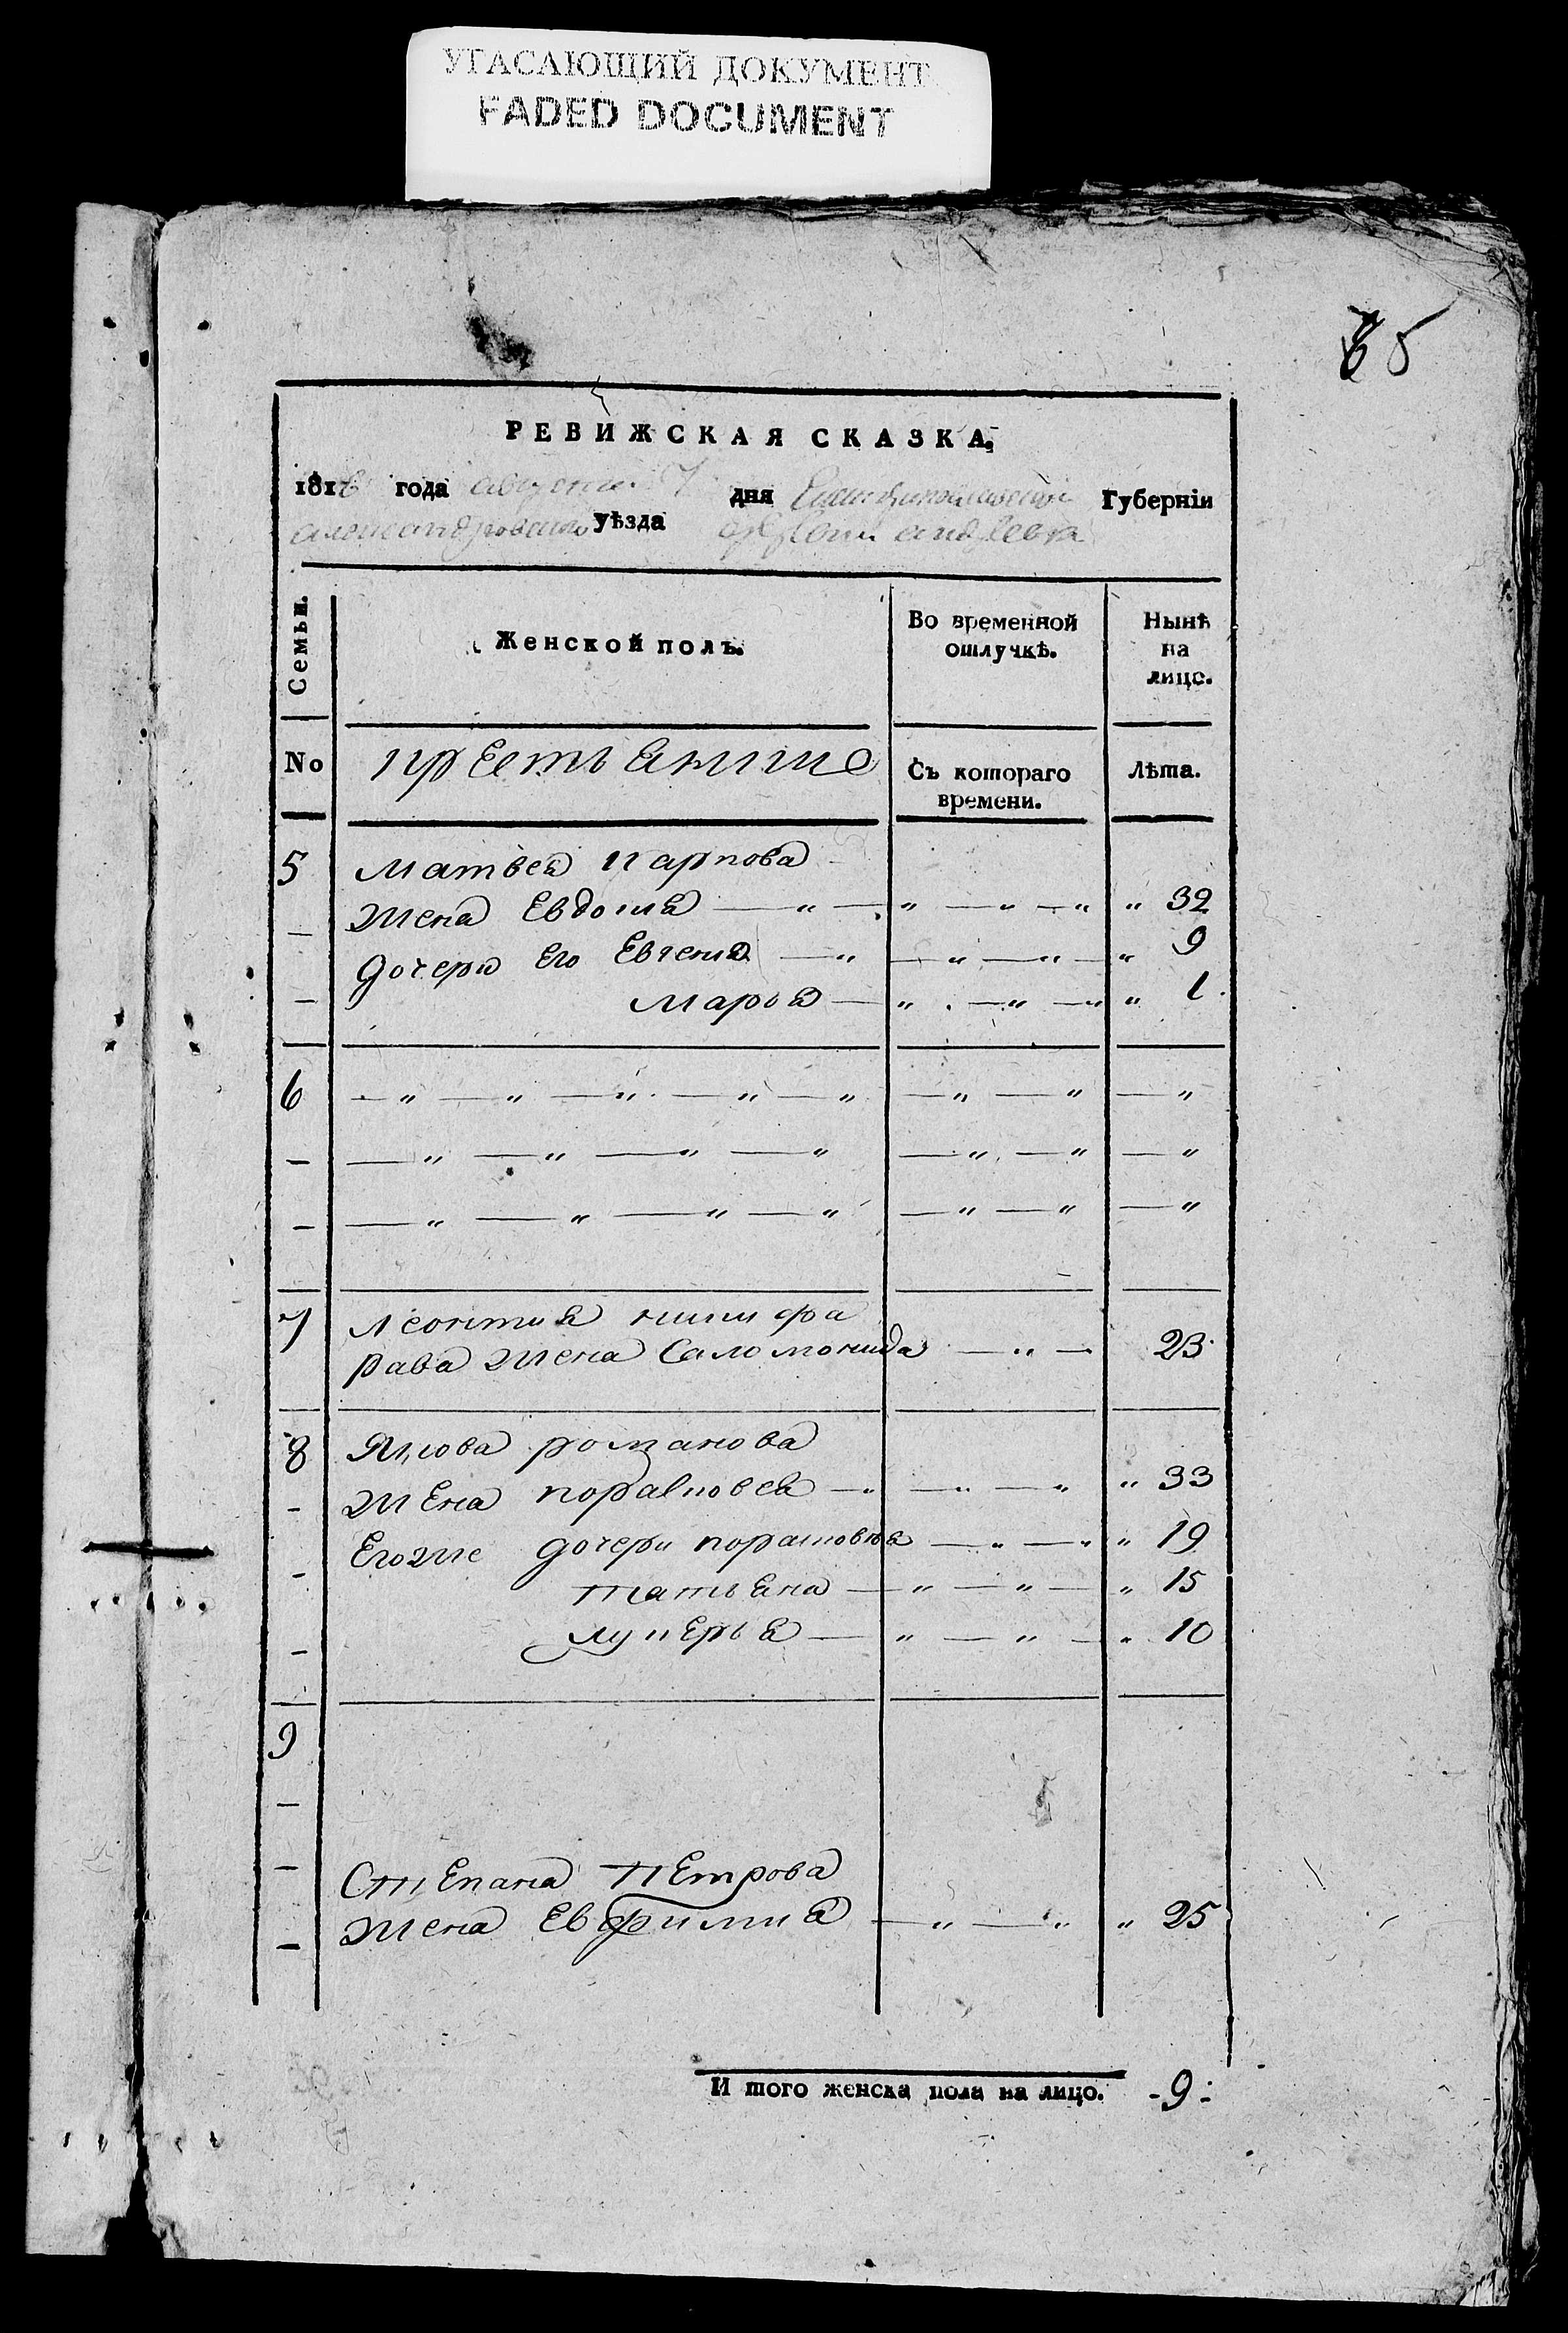 УГАСАЮЩИЙ ДОКУМЕНТ
FADED DOCUMENT
65
РЕВИЖСКАЯ СКАЗКА.
1816 года августа 7 дня Екатеринославской Губерніи
александровскаго уѣзда андреевки
Семьи.
Женской полъ.
Во временной отлучкѣ.
Нынѣ на лицо.
No
крестьянине
Съ котораго времени.
Лѣта.
5 Матвея карпова
жена Евдокия — " — " — " — " " 32
дочери Его Евгения — " — " — " — " 9
марья — " — " — " " 1
6 — " — " — " — " — " — " — " — "
— " — " — " — " — " — " — "
— " — " — " — " — " — " — "
7 Леонтия ники фа
рава жена Саломонида — " — 23
8 Якова романова
жена порасковея — " — " — " " 33
Егоже дочери порасковья — " — " " 19
татьяна — " — " — " 15
лукерья — " — " — " 10
9
Степана петрова
жена Евфимия — " — " " 25
И того женска пола на лицо. - 9 -